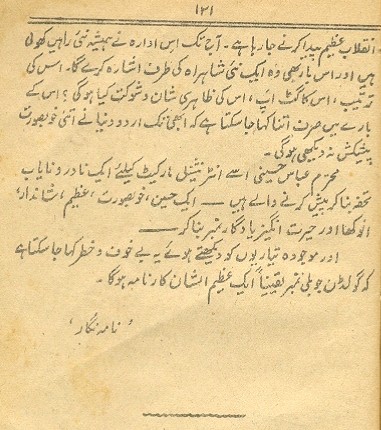 ۱۳۱
انقلاب عظیم پیدا کرنے جا رہا ہے۔ آج تک اِس ادارہ نے ہمیشہ نئی راہیں کھولی
ہیں اور اس بار بھی وہ ایک نئی شاہراہ کی طرف اشارہ کرے گا۔ اس کی
ترتیب، اس کا گٹ اپ، اس کی ظاہری شان و شوکت کیا ہوگی؟ اس کے
بارے میں صرف اتنا کہا جا سکتا ہے کہ ابھی تک اردو دنیا نے اتنی خوبصورت
پیشکش نہ دیکھی ہوگی۔
محترم عباس حسینی اسے انٹرنیشنل مارکیٹ کیلئے ایک نادر و نایاب
تحفہ بنا کر پیش کرنے والے ہیں — ایک حسین، خوبصورت، عظیم، شاندار،
انوکھا اور حیرت انگیز یادگار نمبر بنا کر —
اور موجودہ تیاریوں کو دیکھتے ہوئے یہ بے خوف و خطر کہا جا سکتا ہے
کہ گولڈن جوبلی نمبر یقیناً ایک عظیم الشان کارنامہ ہوگا۔
'نامہ نگار'